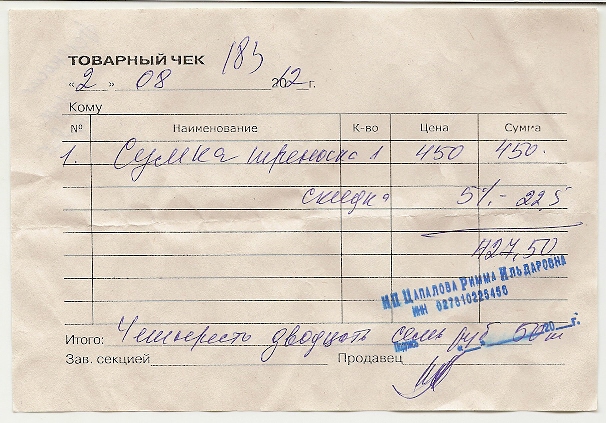 ТОВАРНЫЙ ЧЕК 183
«2» 08 2012 г.
Кому
№ Наименование К-во Цена Сумма
1. Сумка 1 450 450.
скидка 5% - 22,5
427,50
ИП ЦАПАЛОВА РИММА ИЛЬДАРОВНА
ИНН
Итого: Четыреста двадцать семь руб 50 к
Зав. секцией Продавец